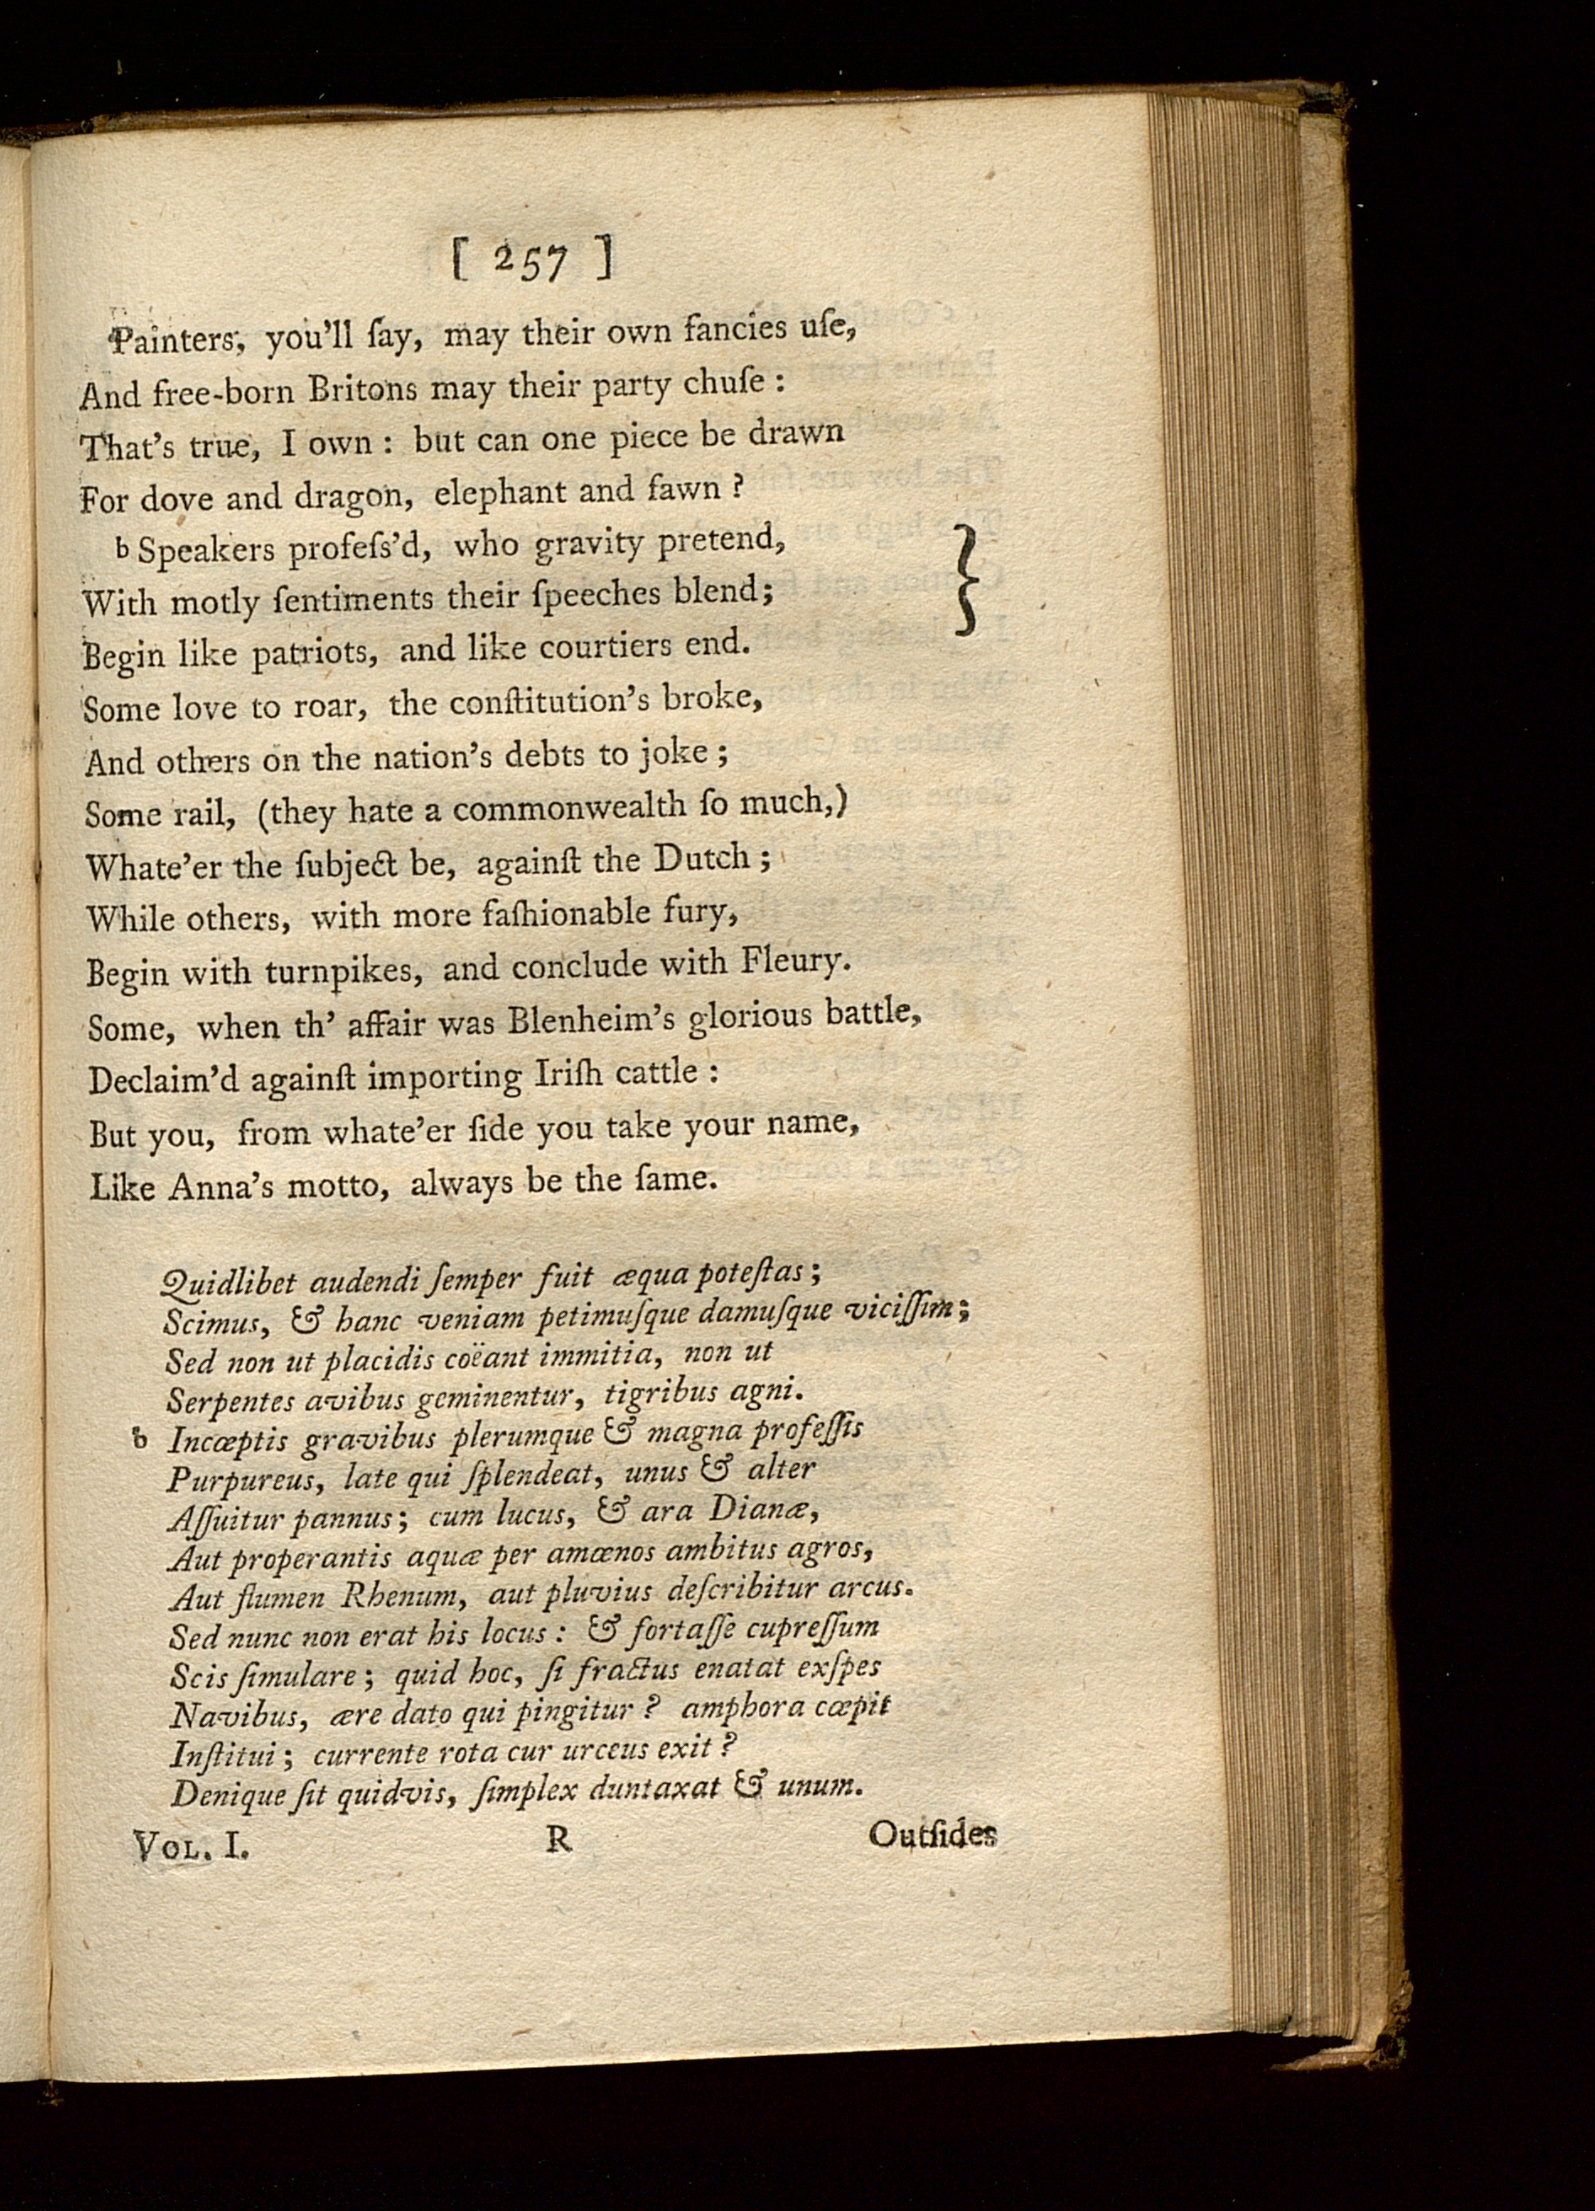 [ 257 ]
Painters, you'll ſay, may their own fancies uſe,
And free-born Britons may their party chuſe :
That's true, I own : but can one piece be drawn
For dove and dragon, elephant and fawn ?
b Speakers profeſs'd, who gravity pretend,
With motly ſentiments their ſpeeches blend; }
Begin like patriots, and like courtiers end.
Some love to roar, the conſtitution's broke,
And others on the nation's debts to joke ;
Some rail, (they hate a commonwealth ſo much,)
Whate'er the ſubject be, againſt the Dutch ;
While others, with more faſhionable fury,
Begin with turnpikes, and conclude with Fleury.
Some, when th' affair was Blenheim's glorious battle,
Declaim'd againſt importing Iriſh cattle :
But you, from whate'er ſide you take your name,
Like Anna's motto, always be the ſame.
Quidlibet audendi ſemper fuit æqua poteſtas ;
Scimus, & hanc veniam petimuſque damuſque viciſſim ;
Sed non ut placidis coëant immitia, non ut
Serpentes avibus geminentur, tigribus agni.
b Incœptis gravibus plerumque & magna profeſſis
Purpureus, late qui ſplendeat, unus & alter
Aſſuitur pannus ; cum lucus, & ara Dianæ,
Aut properantis aquæ per amœnos ambitus agros,
Aut flumen Rhenum, aut pluvius deſcribitur arcus.
Sed nunc non erat his locus : & fortaſſe cupreſſum
Scis ſimulare ; quid hoc, ſi fractus enatat exſpes
Navibus, ære dato qui pingitur ? amphora cœpit
Inſtitui ; currente rota cur urceus exit ?
Denique ſit quidvis, ſimplex duntaxat & unum.
VOL. I. R Outſides